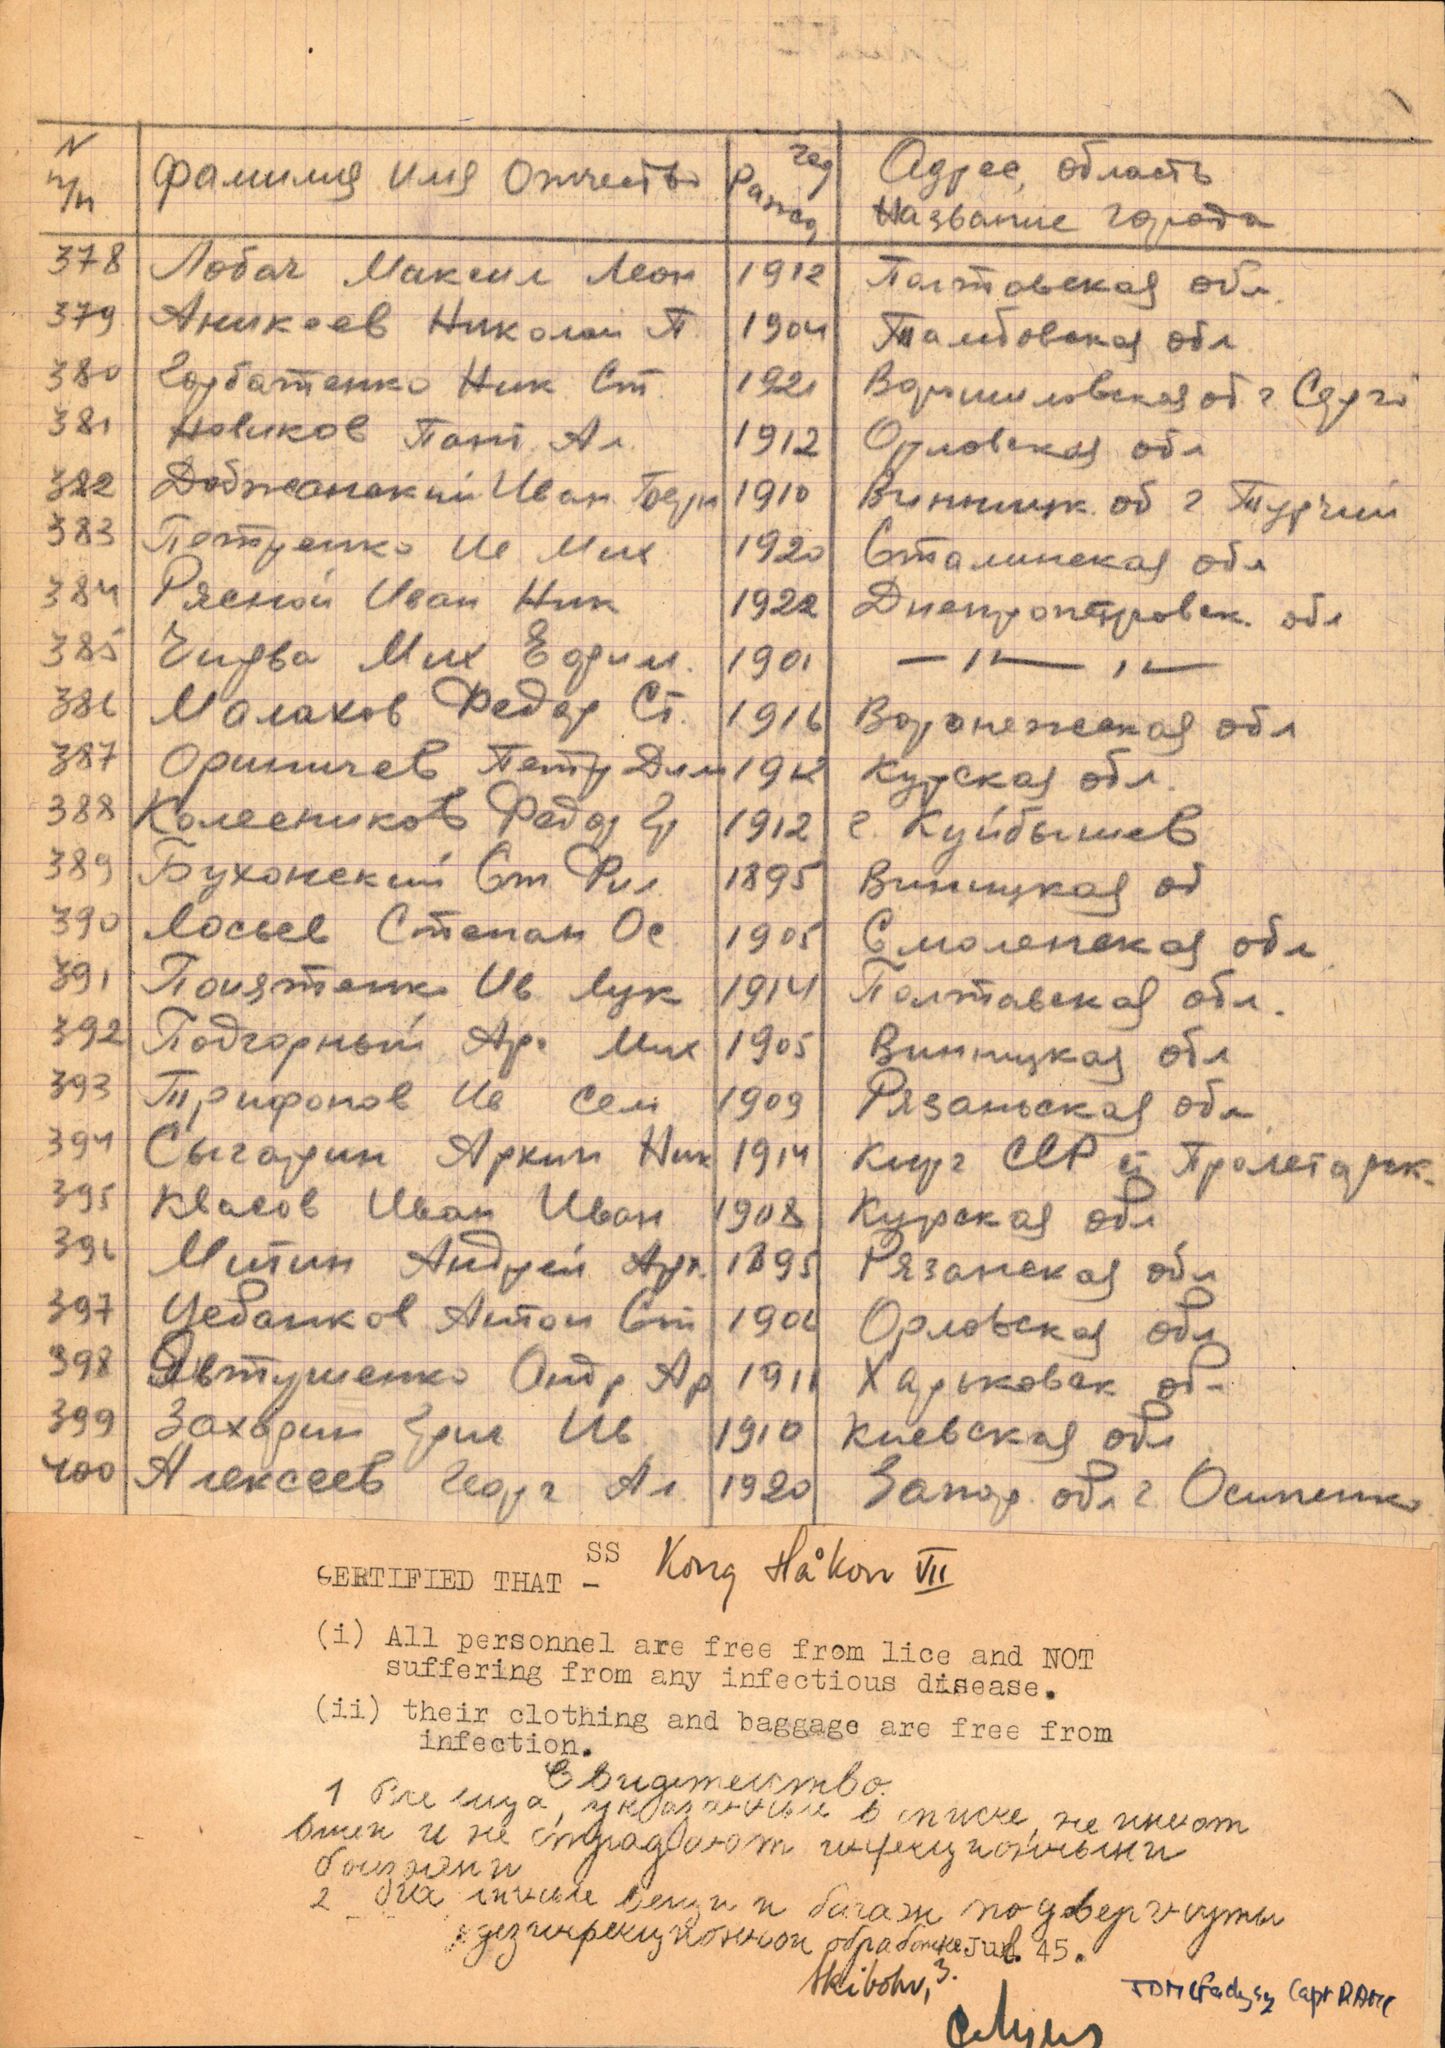 N п/п Фамилия Имя Отчество год Рожд Адрес, область
Название города
378 Лобач Максим Леон 1912 Полтавская обл.
379 Аникеев Николай П. 1904 Тамбовская обл
380 Горбатенко Ник Ст. 1921 Ворошиловская об г. Серго
381 Новиков Пант. Ал. 1912 Орловская обл
382 Добжанский Иван 1910 Винницк. об г
383 Петренко Ив Мих 1920 Сталинская обл
384 Рясной Иван Ник 1922 Днепропетровск. обл
385 Мих Ефрим. 1901 — " — " —
386 Малахов Федор Ст. 1916 Воронежская обл
387 Ориничев Петр Дми 1912 Курская обл.
388 Колесников Федор Гр 1912 г. Куйбышев
389 Бухонский Ст Фил 1895 Виницкая об
390 Лосьев Степан Ос 1905 Смоленская обл
391 Ив Лук 1914 Полтавская обл.
392 Подгорный Мих 1905 Винницкая обл
393 Трифонов Ив Сем 1909 Рязаньская обл
394 Сыгарин Аркип Ник 1914 Кирг ССР
395 Квасов Иван Иван 1908 Курская обл
396 Митин Андрей Арх. 1895 Рязанская обл
397 Цебанков Антон Ст 1906 Орловская обл
398 Явтушенко Андр Ар 1911 Харьковск обл
399 Захарин Ив 1910 Киевская обл
400 Алексеев Георг Ал. 1920 Запор. обл г. Осипенко
SS Kong Håkon VII
CERTIFIED THAT -
(i) All personnel are free from lice and NOT
suffering from any infectious disease.
(ii) their clothing and baggage are free from
infection.
Свидетельство.
1 Все лица, указанные в списке, не имеют
вшей и не страдают инфекционными
болезнями
2 Их личные вещи и багаж подвергнуты
дезинфекционной обработке Jul. 45.
Skibotn, 3.
Capt RAMC